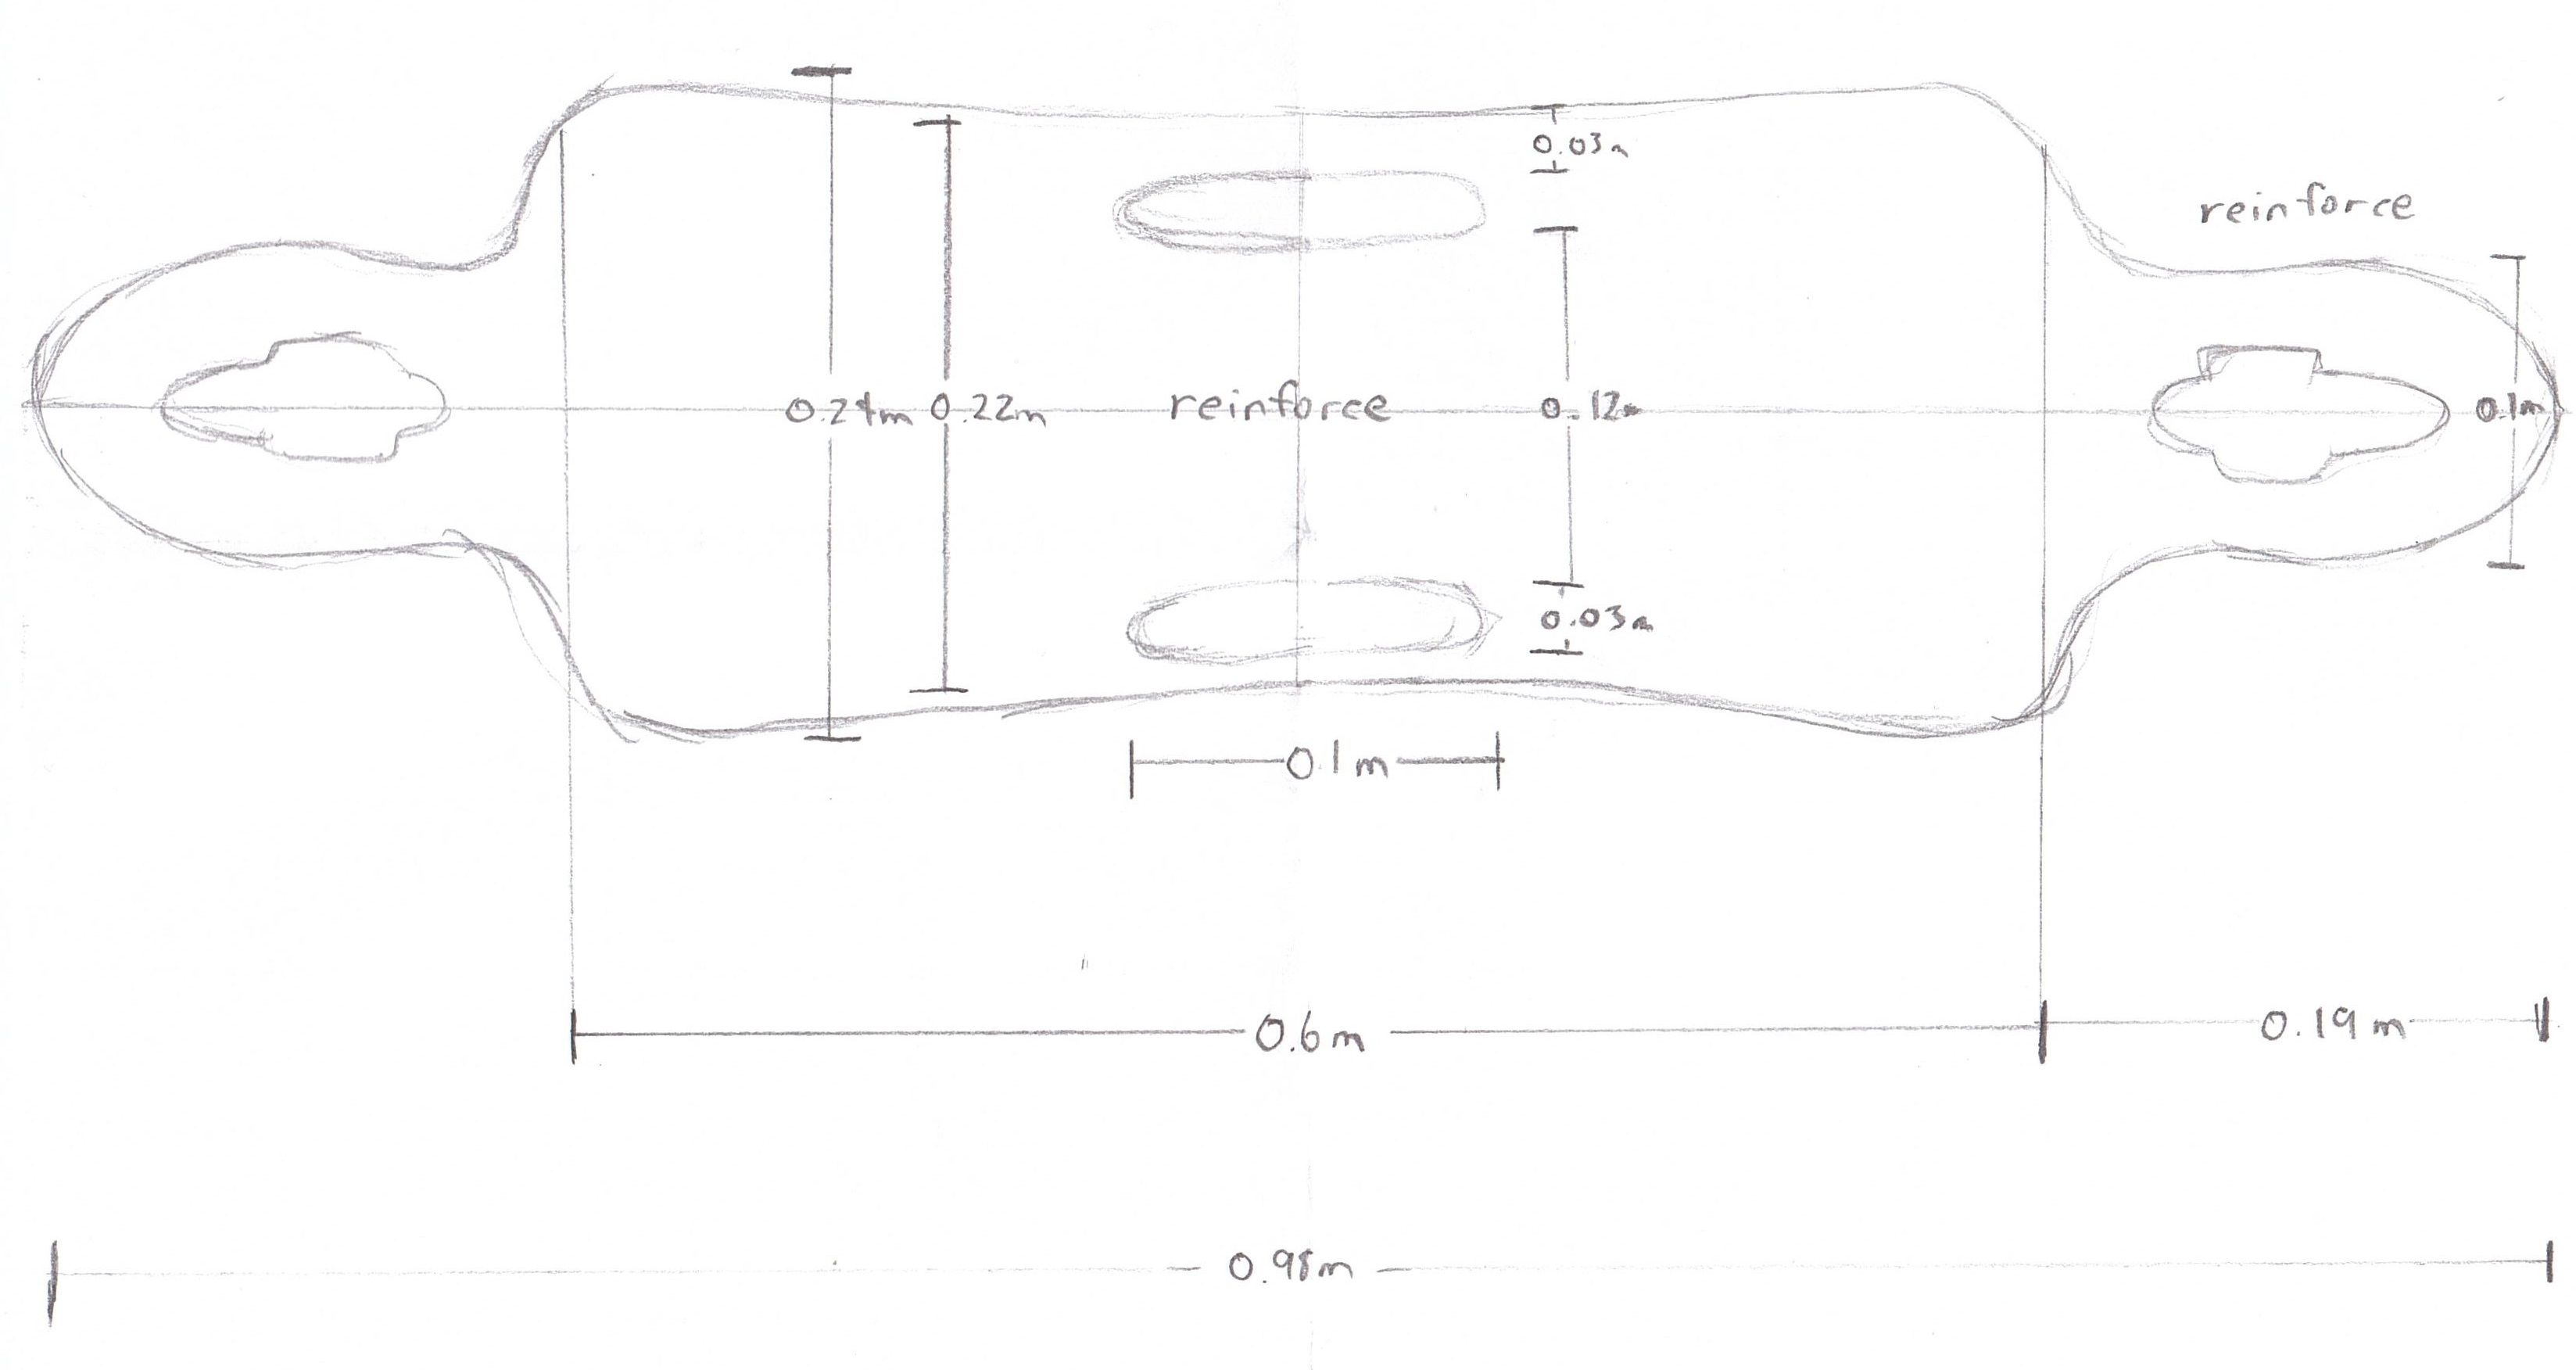 0.03m
reinforce
0.24m 0.22m reinforce 0.12m 0.1m
0.03m
0.1m
0.6m 0.19m
0.98m